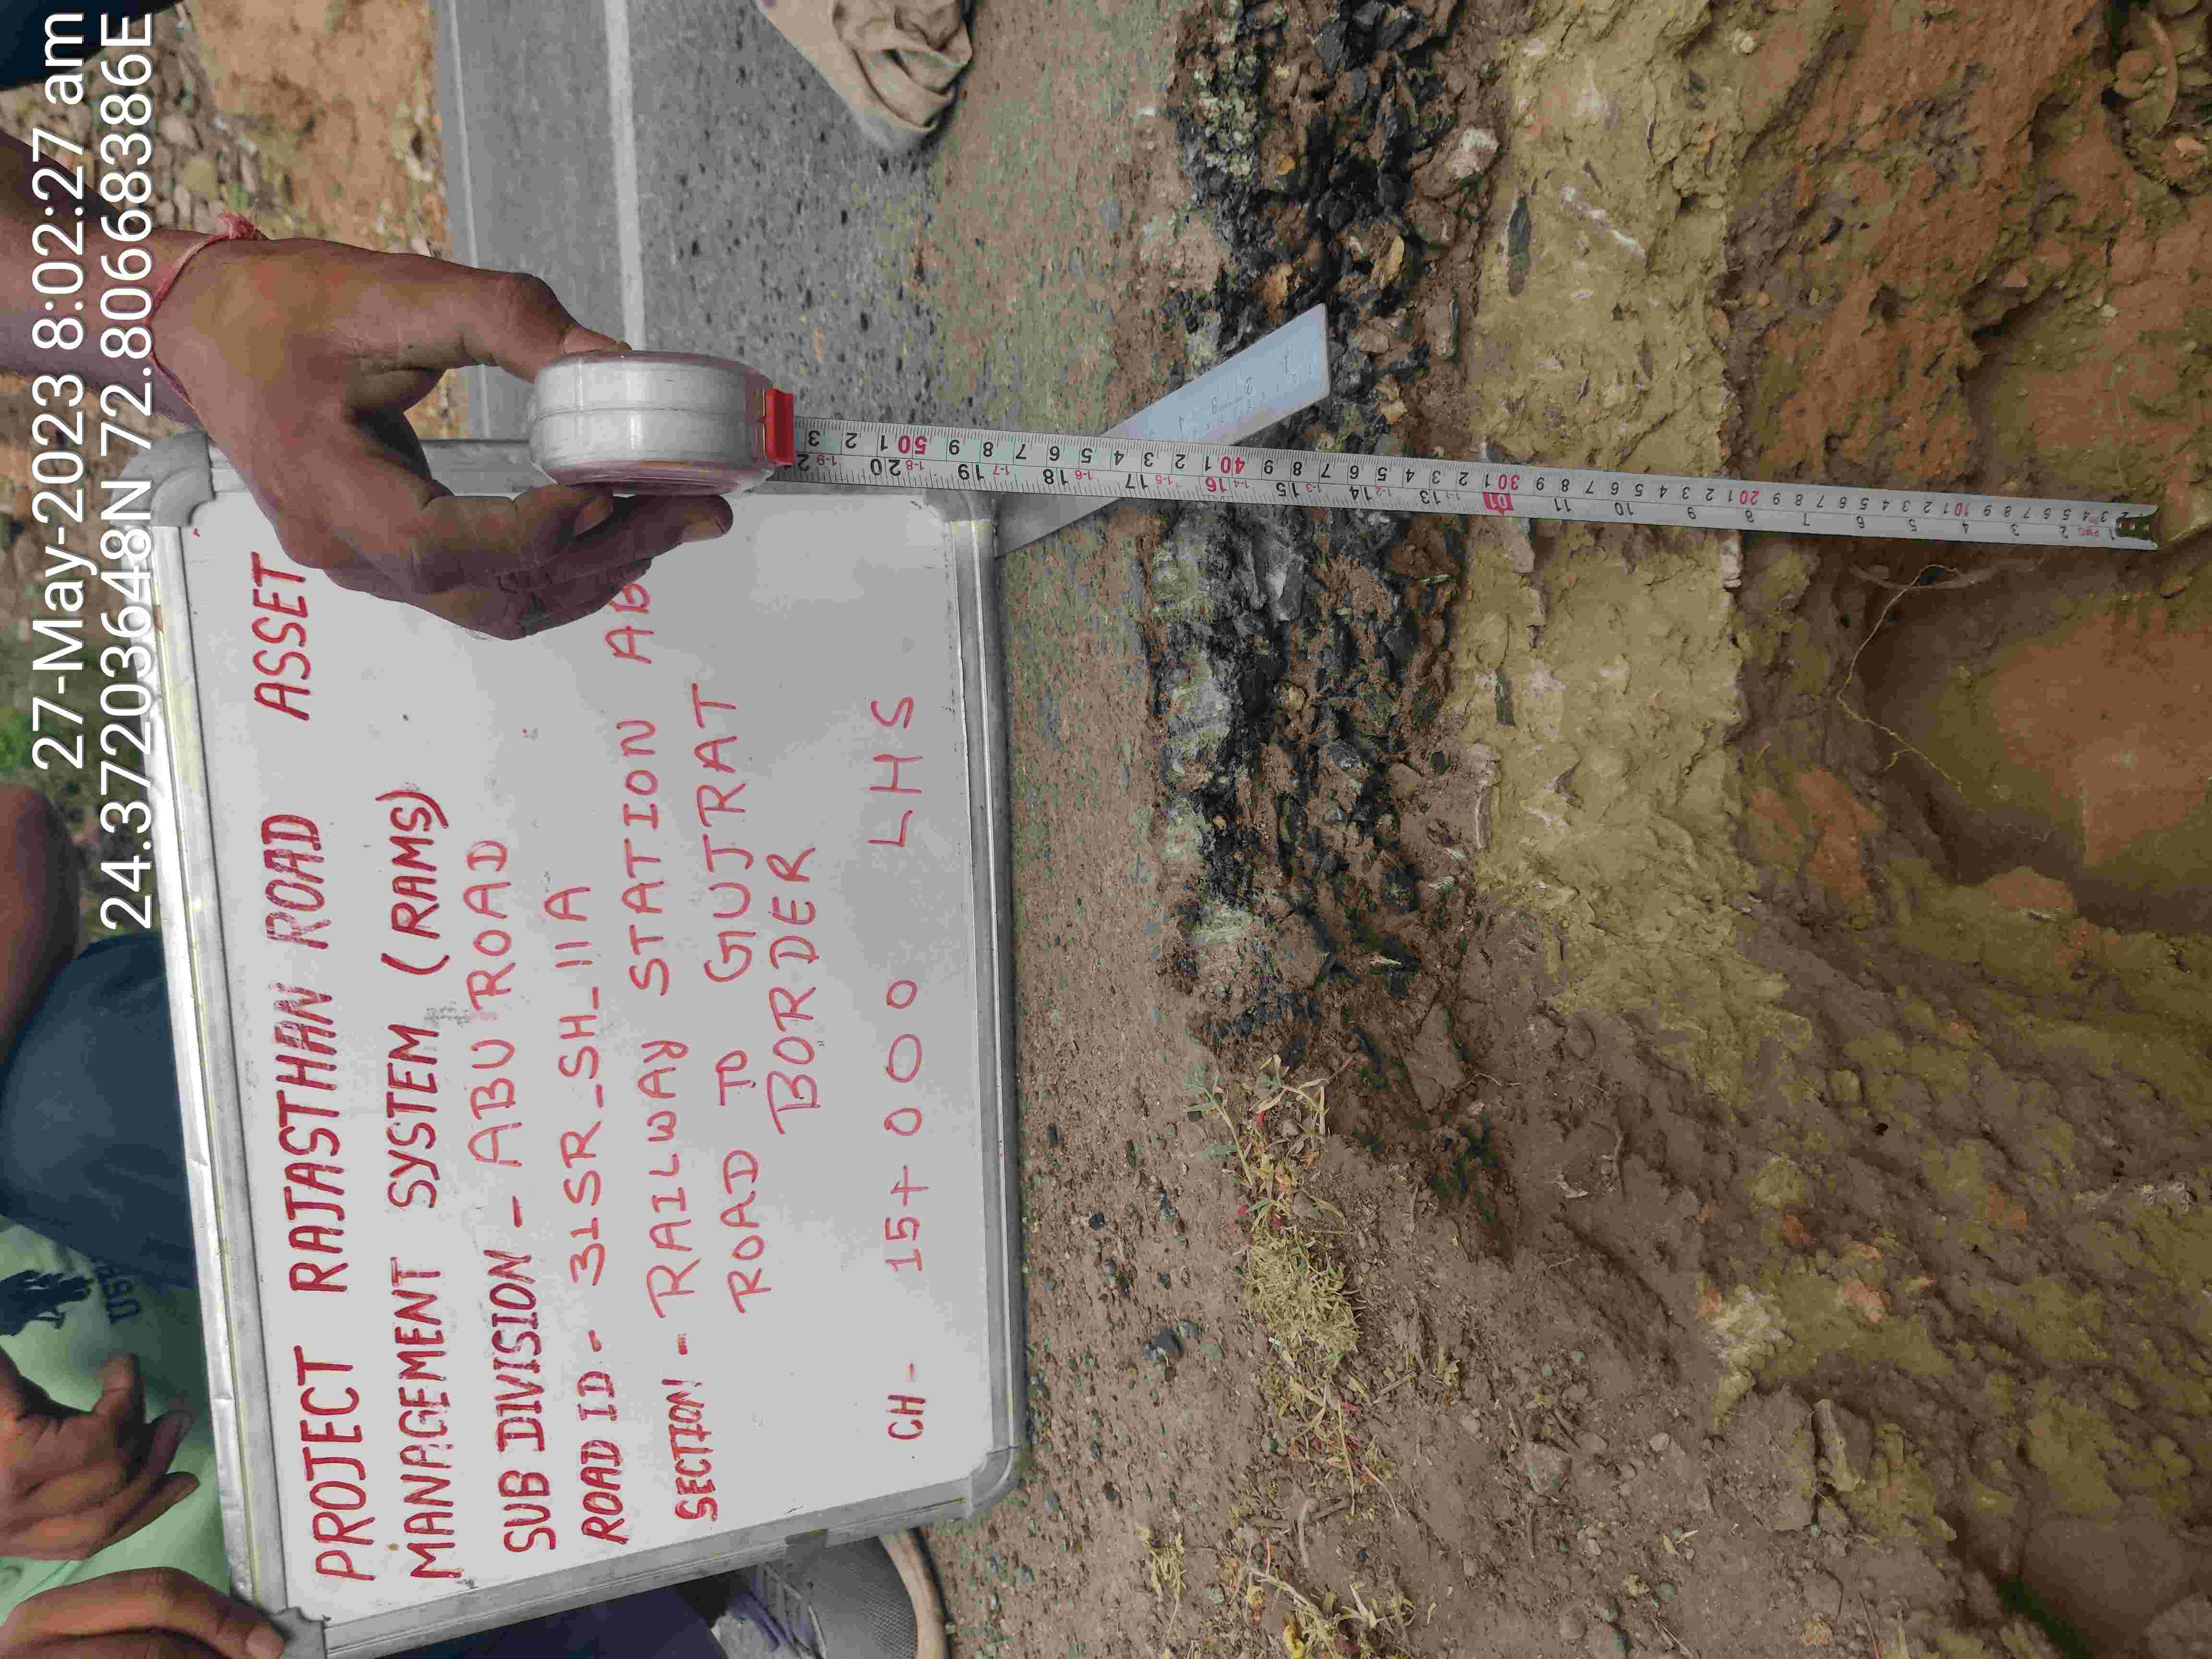 27-May-2023 8:02:27 am
24.372036648N 72.806683886E
PROJECT RAJASTHAN ROAD ASSET
MANAGEMENT SYSTEM (RAMS)
SUB DIVISION - ABU ROAD
ROAD ID - 31SR_SH_11A
SECTION - RAILWAY STATION AB
ROAD TO GUJRAT
BORDER
CH- 15+000 LHS